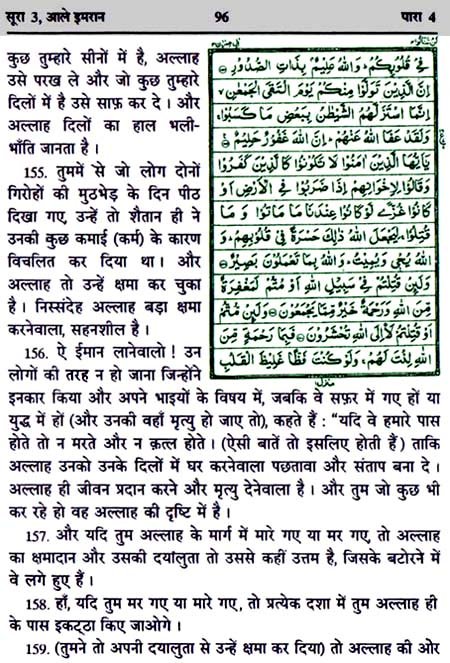 सूरा 3, आले इमरान 96 पारा 4
कुछ तुम्हारे सीनों में है, अल्लाह
उसे परख ले और जो कुछ तुम्हारे
दिलों में है उसे साफ़ कर दे । और
अल्लाह दिलों का हाल भली-
भाँति जानता है ।
155. तुममें से जो लोग दोनों
गिरोहों की मुठभेड़ के दिन पीठ
दिखा गए, उन्हें तो शैतान ही ने
उनकी कुछ कमाई (कर्म) के कारण
विचलित कर दिया था । और
अल्लाह तो उन्हें क्षमा कर चुका
है । निस्संदेह अल्लाह बड़ा क्षमा
करनेवाला, सहनशील है ।
156. ऐ ईमान लानेवालो ! उन
लोगों की तरह न हो जाना जिन्होंने
فِىْ قُلُوْبِكُمْ ؕ وَاللّٰهُ عَلِيْمٌۢ بِذَاتِ الصُّدُوْرِ
اِنَّ الَّذِيْنَ تَوَلَّوْا مِنْكُمْ يَوْمَ الْتَقَى الْجَمْعٰنِ ۙ
اِنَّمَا اسْتَزَلَّهُمُ الشَّيْطٰنُ بِبَعْضِ مَا كَسَبُوْا ۚ
وَلَقَدْ عَفَا اللّٰهُ عَنْهُمْ ؕ اِنَّ اللّٰهَ غَفُوْرٌ حَلِيْمٌ
يٰۤاَيُّهَا الَّذِيْنَ اٰمَنُوْا لَا تَكُوْنُوْا كَالَّذِيْنَ كَفَرُوْا
وَقَالُوْا لِاِخْوَانِهِمْ اِذَا ضَرَبُوْا فِى الْاَرْضِ اَوْ
كَانُوْا غُزًّى لَّوْ كَانُوْا عِنْدَنَا مَا مَاتُوْا وَ مَا
قُتِلُوْا ۚ لِيَجْعَلَ اللّٰهُ ذٰلِكَ حَسْرَةً فِىْ قُلُوْبِهِمْ ؕ وَ
اللّٰهُ يُحْيٖ وَيُمِيْتُ ؕ وَاللّٰهُ بِمَا تَعْمَلُوْنَ بَصِيْرٌ
وَلَئِنْ قُتِلْتُمْ فِىْ سَبِيْلِ اللّٰهِ اَوْ مُتُّمْ لَمَغْفِرَةٌ
مِّنَ اللّٰهِ وَرَحْمَةٌ خَيْرٌ مِّمَّا يَجْمَعُوْنَ وَلَئِنْ مُّتُّمْ
اَوْ قُتِلْتُمْ لَاِلَى اللّٰهِ تُحْشَرُوْنَ فَبِمَا رَحْمَةٍ مِّنَ
اللّٰهِ لِنْتَ لَهُمْ ۚ وَلَوْ كُنْتَ فَظًّا غَلِيْظَ الْقَلْبِ
इनकार किया और अपने भाइयों के विषय में, जबकि वे सफ़र में गए हों या
युद्ध में हों (और उनकी वहाँ मृत्यु हो जाए तो), कहते हैं : “यदि वे हमारे पास
होते तो न मरते और न क़त्ल होते । (ऐसी बातें तो इसलिए होती हैं) ताकि
अल्लाह उनको उनके दिलों में घर करनेवाला पछतावा और संताप बना दे ।
अल्लाह ही जीवन प्रदान करने और मृत्यु देनेवाला है । और तुम जो कुछ भी
कर रहे हो वह अल्लाह की दृष्टि में है ।
157. और यदि तुम अल्लाह के मार्ग में मारे गए या मर गए, तो अल्लाह
का क्षमादान और उसकी दयालुता तो उससे कहीं उत्तम है, जिसके बटोरने में
वे लगे हुए हैं ।
158. हाँ, यदि तुम मर गए या मारे गए, तो प्रत्येक दशा में तुम अल्लाह ही
के पास इकट्ठा किए जाओगे ।
159. (तुमने तो अपनी दयालुता से उन्हें क्षमा कर दिया) तो अल्लाह की ओर